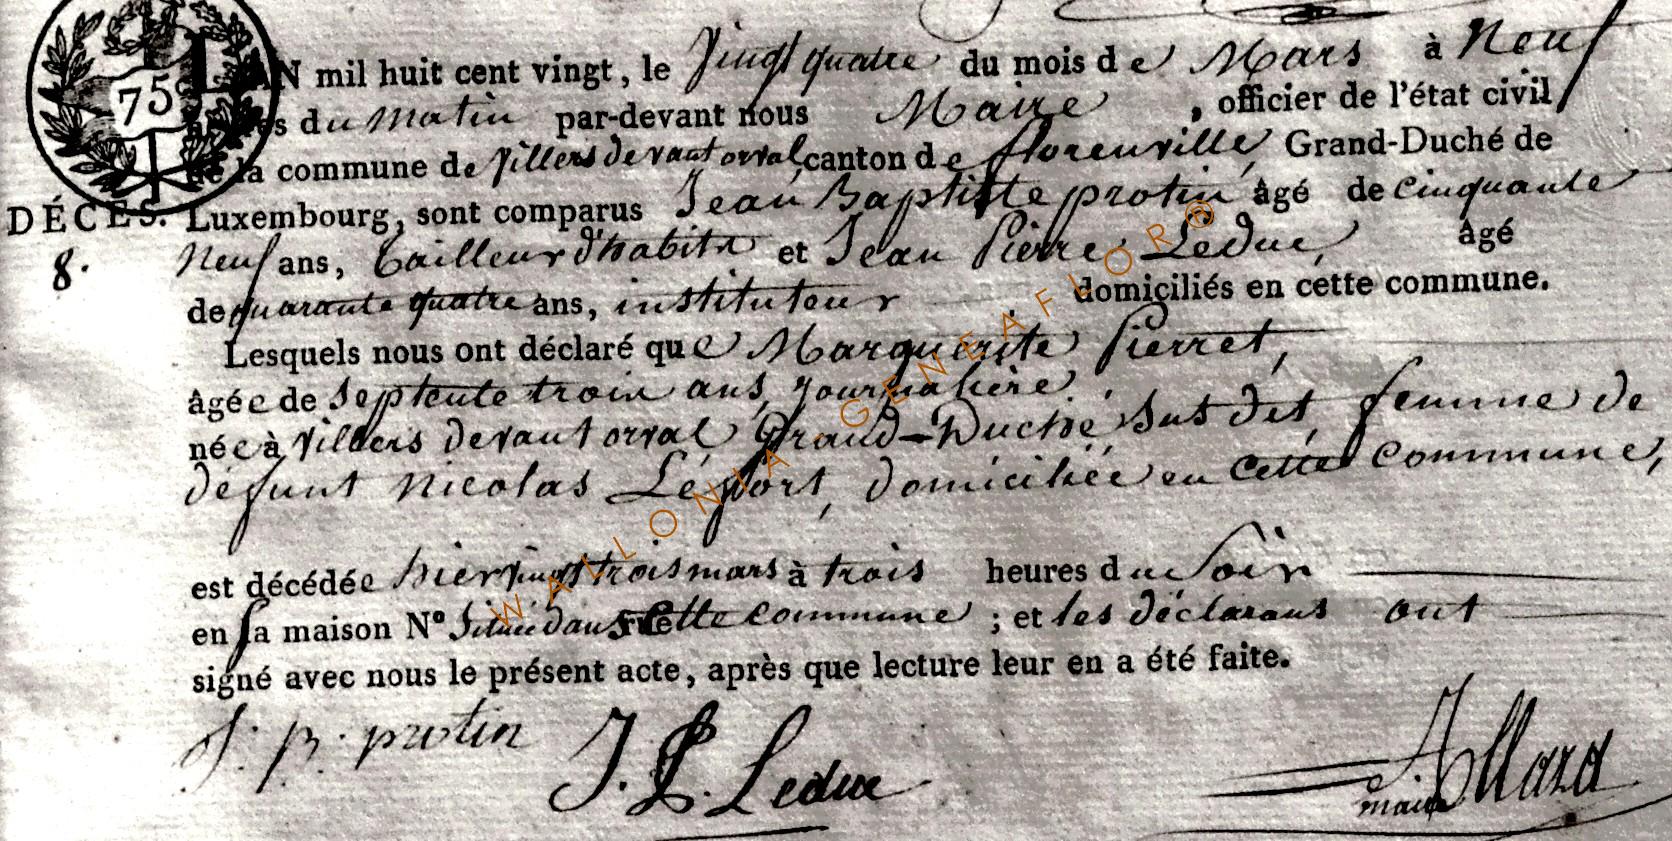 75
L'AN mil huit cent vingt, le Vingt quatre du mois de Mars à Neuf
heures du matin par-devant nous Maire, officier de l'état civil
de la commune de Villers devant orval, canton de florenville, Grand-Duché de
DÉCÈS. Luxembourg, sont comparus Jean Baptiste protin âgé de cinquante
8. Neuf ans, tailleur d'habits et Jean Pierre Leduc, âgé
de quarante quatre ans, instituteur domiciliés en cette commune.
Lesquels nous ont déclaré que Marguerite Pierret,
âgée de septente trois ans, journalière
née à Villers devant orval Grand-Duché susdit, femme de
défunt nicolas Léfort, domiciliée en cette commune,
est décédée hier vingt trois mars à trois heures du soir
en sa maison N° située dans cette commune ; et les déclarans ont
signé avec nous le présent acte, après que lecture leur en a été faite.
J: B: protin J. P. Leduc Allard
maire
WALLONIA GENEAFLOR®